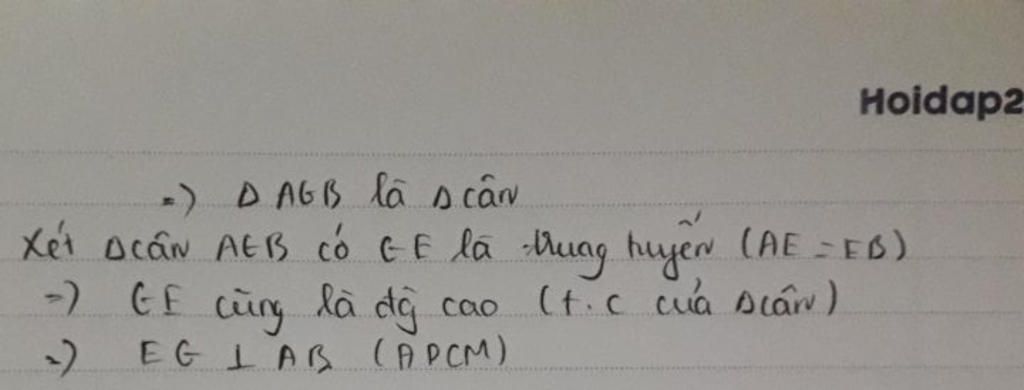 Hoidap2
=) Δ AGB là Δ cân
Xét Δcân AGB có GE là trung tuyến (AE = EB)
=) GE cũng là đg cao (t.c của Δcân)
=) EG ⊥ AB (ĐPCM)